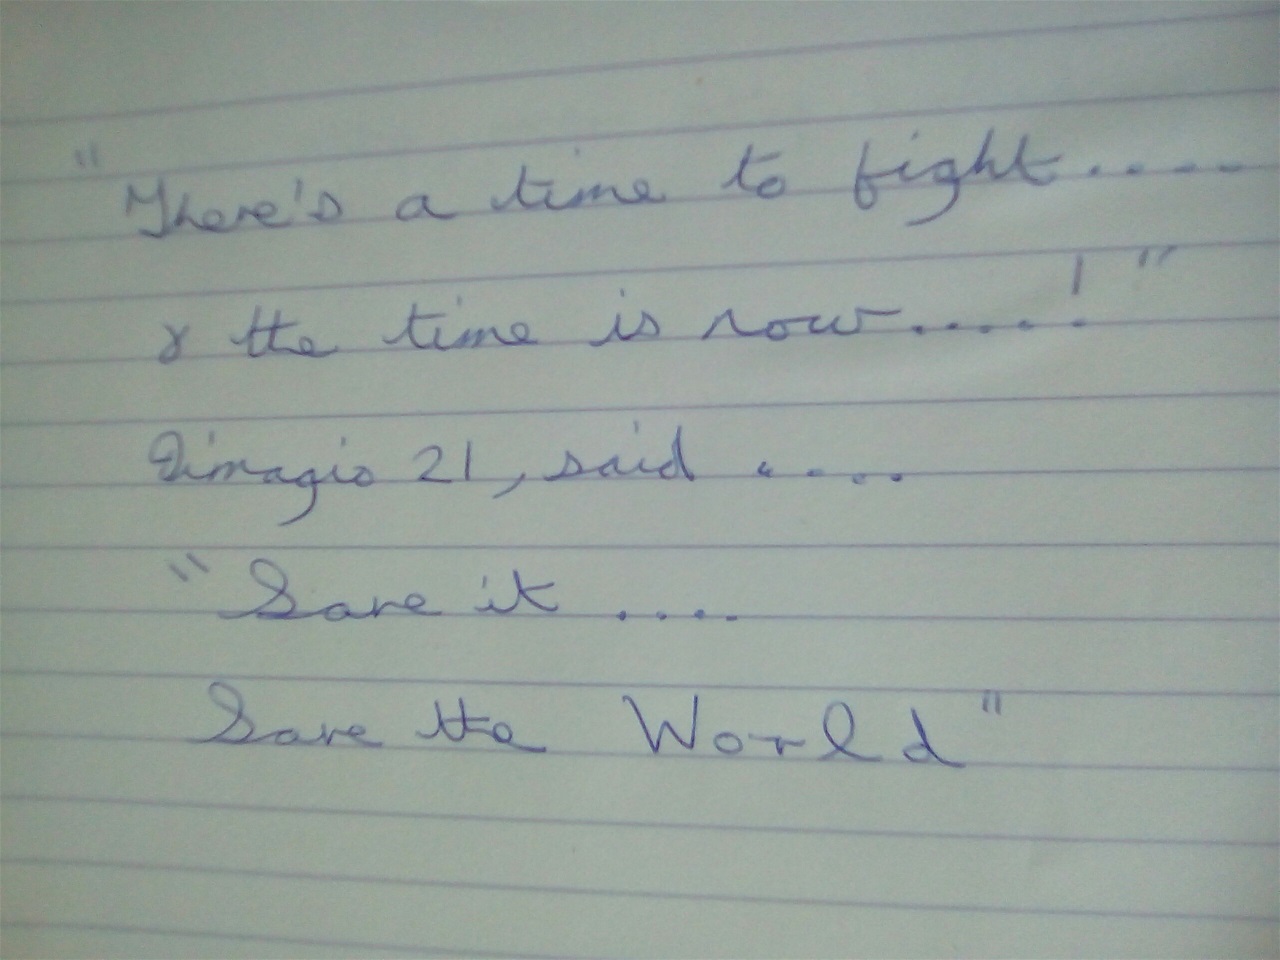 "There's a time to fight.....
& the time is now.....!"
Dimagio 21, said ....
"Save it ....
Save the World"